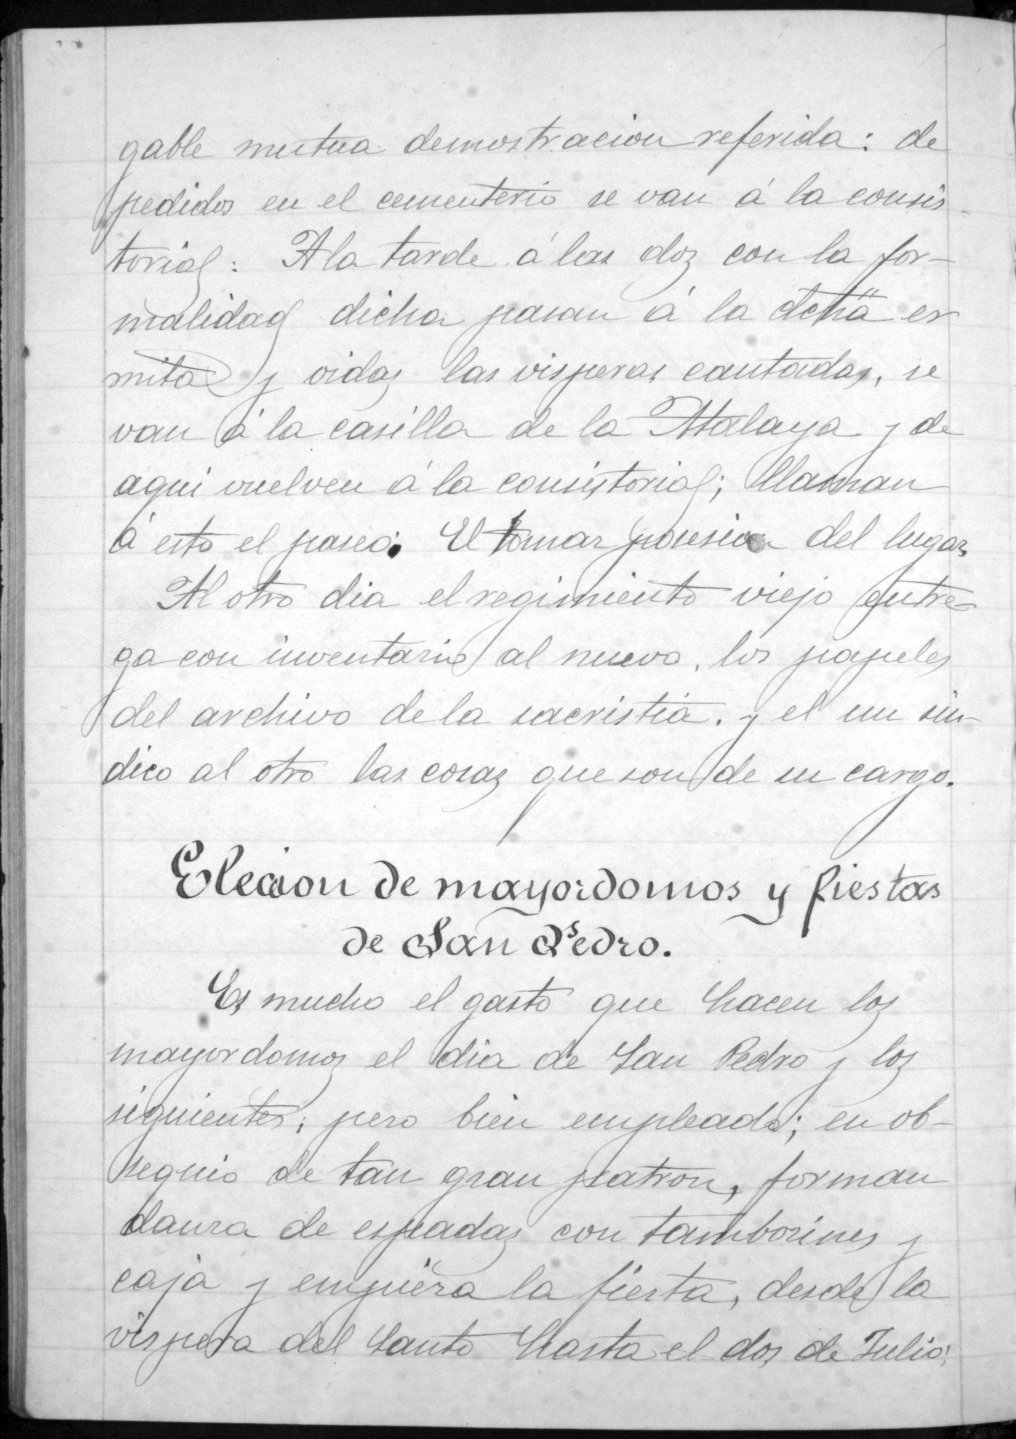 gable mutua demostracion referida: de
pedidos en el cementerio se van á la consis-
torial: A la tarde á las dos con la for-
malidad dicha pasan á la dcha er
mita y oidas las visperas cantadas, se
van á la casilla de la Atalaya y de
aqui vuelven á la consistorial; llaman
á esto el paseo: El tomar posesion del lugar.
Al otro dia el regimiento viejo entre-
ga con inventario al nuevo, los papeles
del archivo de la sacristia. y el un sin-
dico al otro las cosas que son de su cargo.
Elecion de mayordomos y fiestas
de San Pedro.
Es mucho el gasto que hacen los
mayordomos el dia de San Pedro y los
siguientes; pero bien empleado; en ob-
sequio de tan gran patron, forman
danza de espadas con tamborines y
caja y empieza la fiesta, desde la
vispera del Santo hasta el dos de Julio;